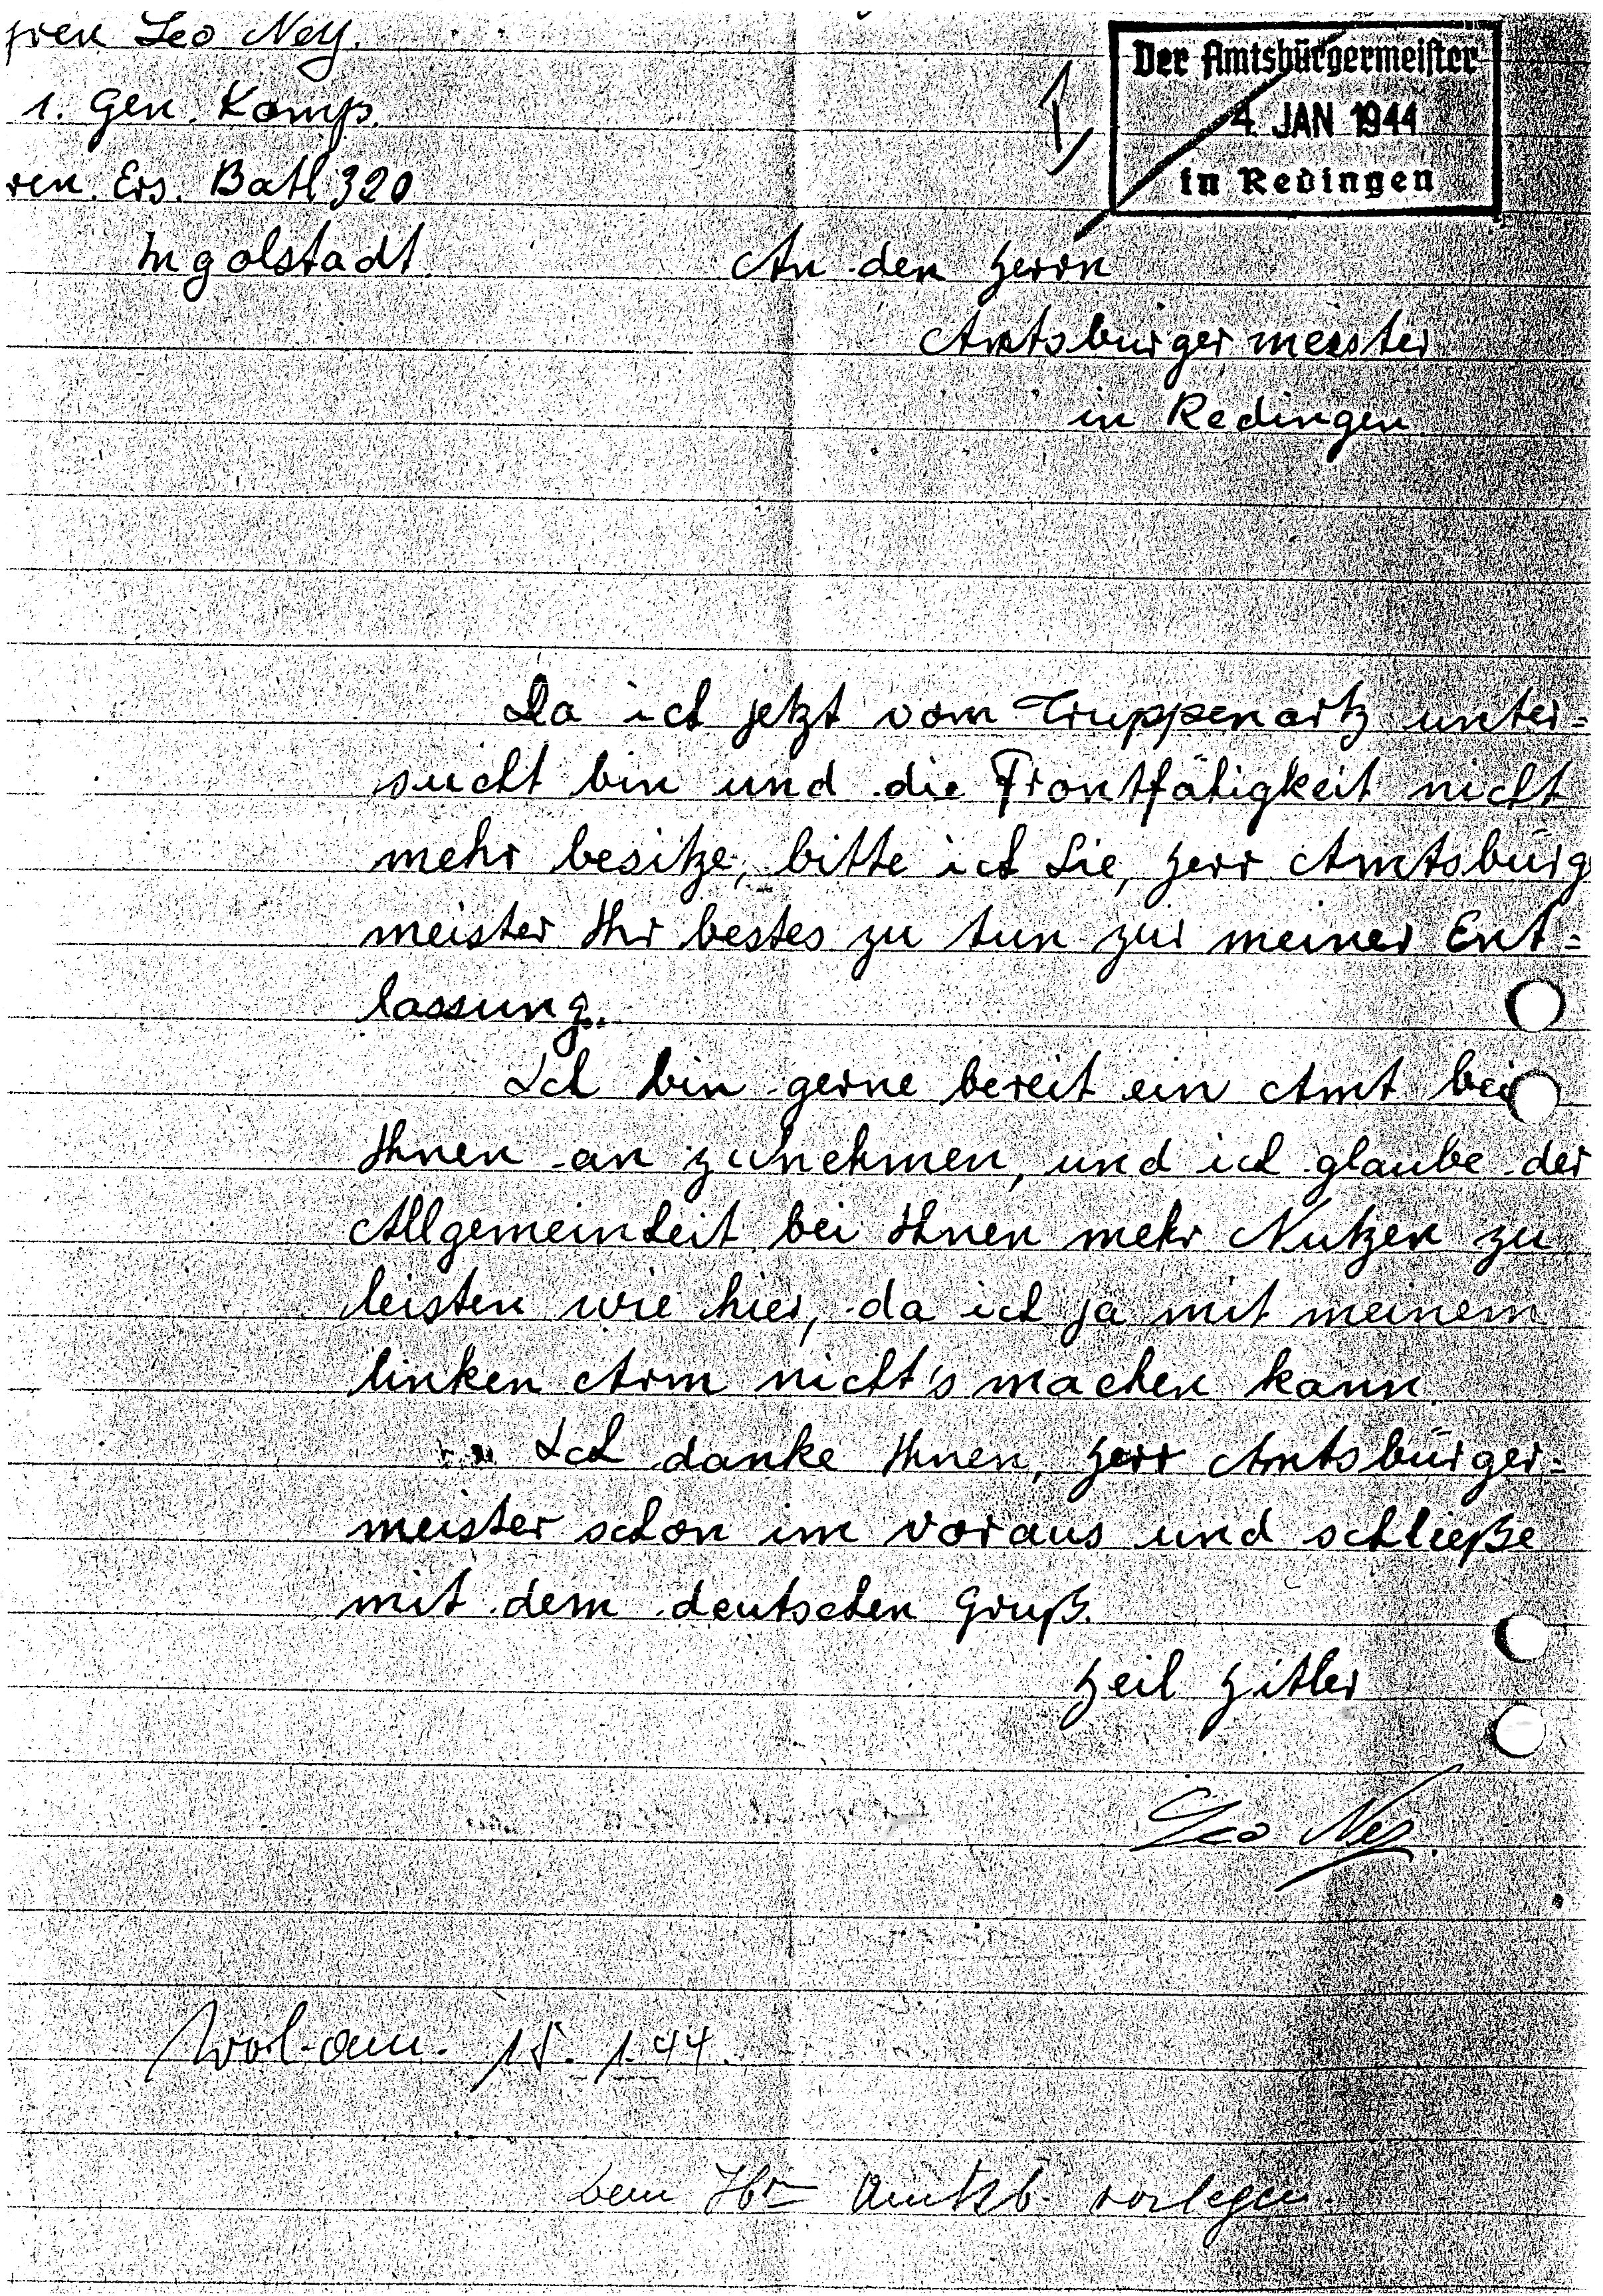 Leo Ney.
1. Gen. Komp.
Ers. Batl 320
Ingolstadt.
Der Amtsbürgermeister
4. JAN 1944
in Redingen
An den Herrn
Amtsbürgermeister
in Redingen
Da ich jetzt vom Truppenartz unter=
sucht bin und die Frontfähigkeit nicht
mehr besitze, bitte ich Sie, Herr Amtsbürg
meister Ihr bestes zu tun zur meiner Ent=
lassung.
Ich bin gerne bereit ein Amt bei
Ihnen an zunehmen, und ich glaube der
Allgemeinheit bei Ihnen mehr Nutzen zu
leisten wie hier, da ich ja mit meinem
linken Arm nicht's machen kann.
Ich danke Ihnen, Herr Amtsbürger=
meister schon im voraus und schließe
mit dem deutschen Gruß.
Heil Hitler
Leo Ney.
15. 1. 44.
Hrn Amtsb. vorlegen.